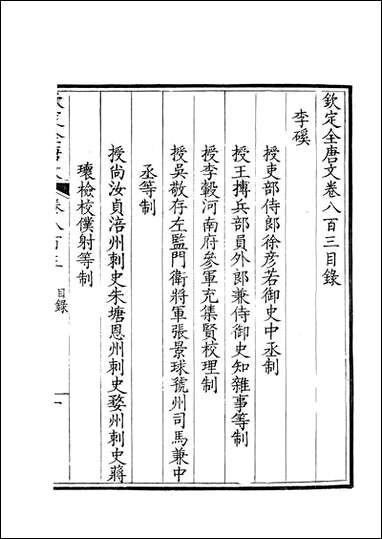 欽定全唐文卷八百三目錄
李磎
授吏部侍郎徐彥若御史中丞制
授王摶兵部員外郎兼侍御史知雜事等制
授李轂河南府參軍充集賢校理制
授吳敬存左監門衛將軍張景球虢州司馬兼中
丞等制
授尚汝貞涪州刺史朱塘恩州刺史婺州刺史蔣
瓌檢校僕射等制
欽定全唐文 卷八百三 目錄 一